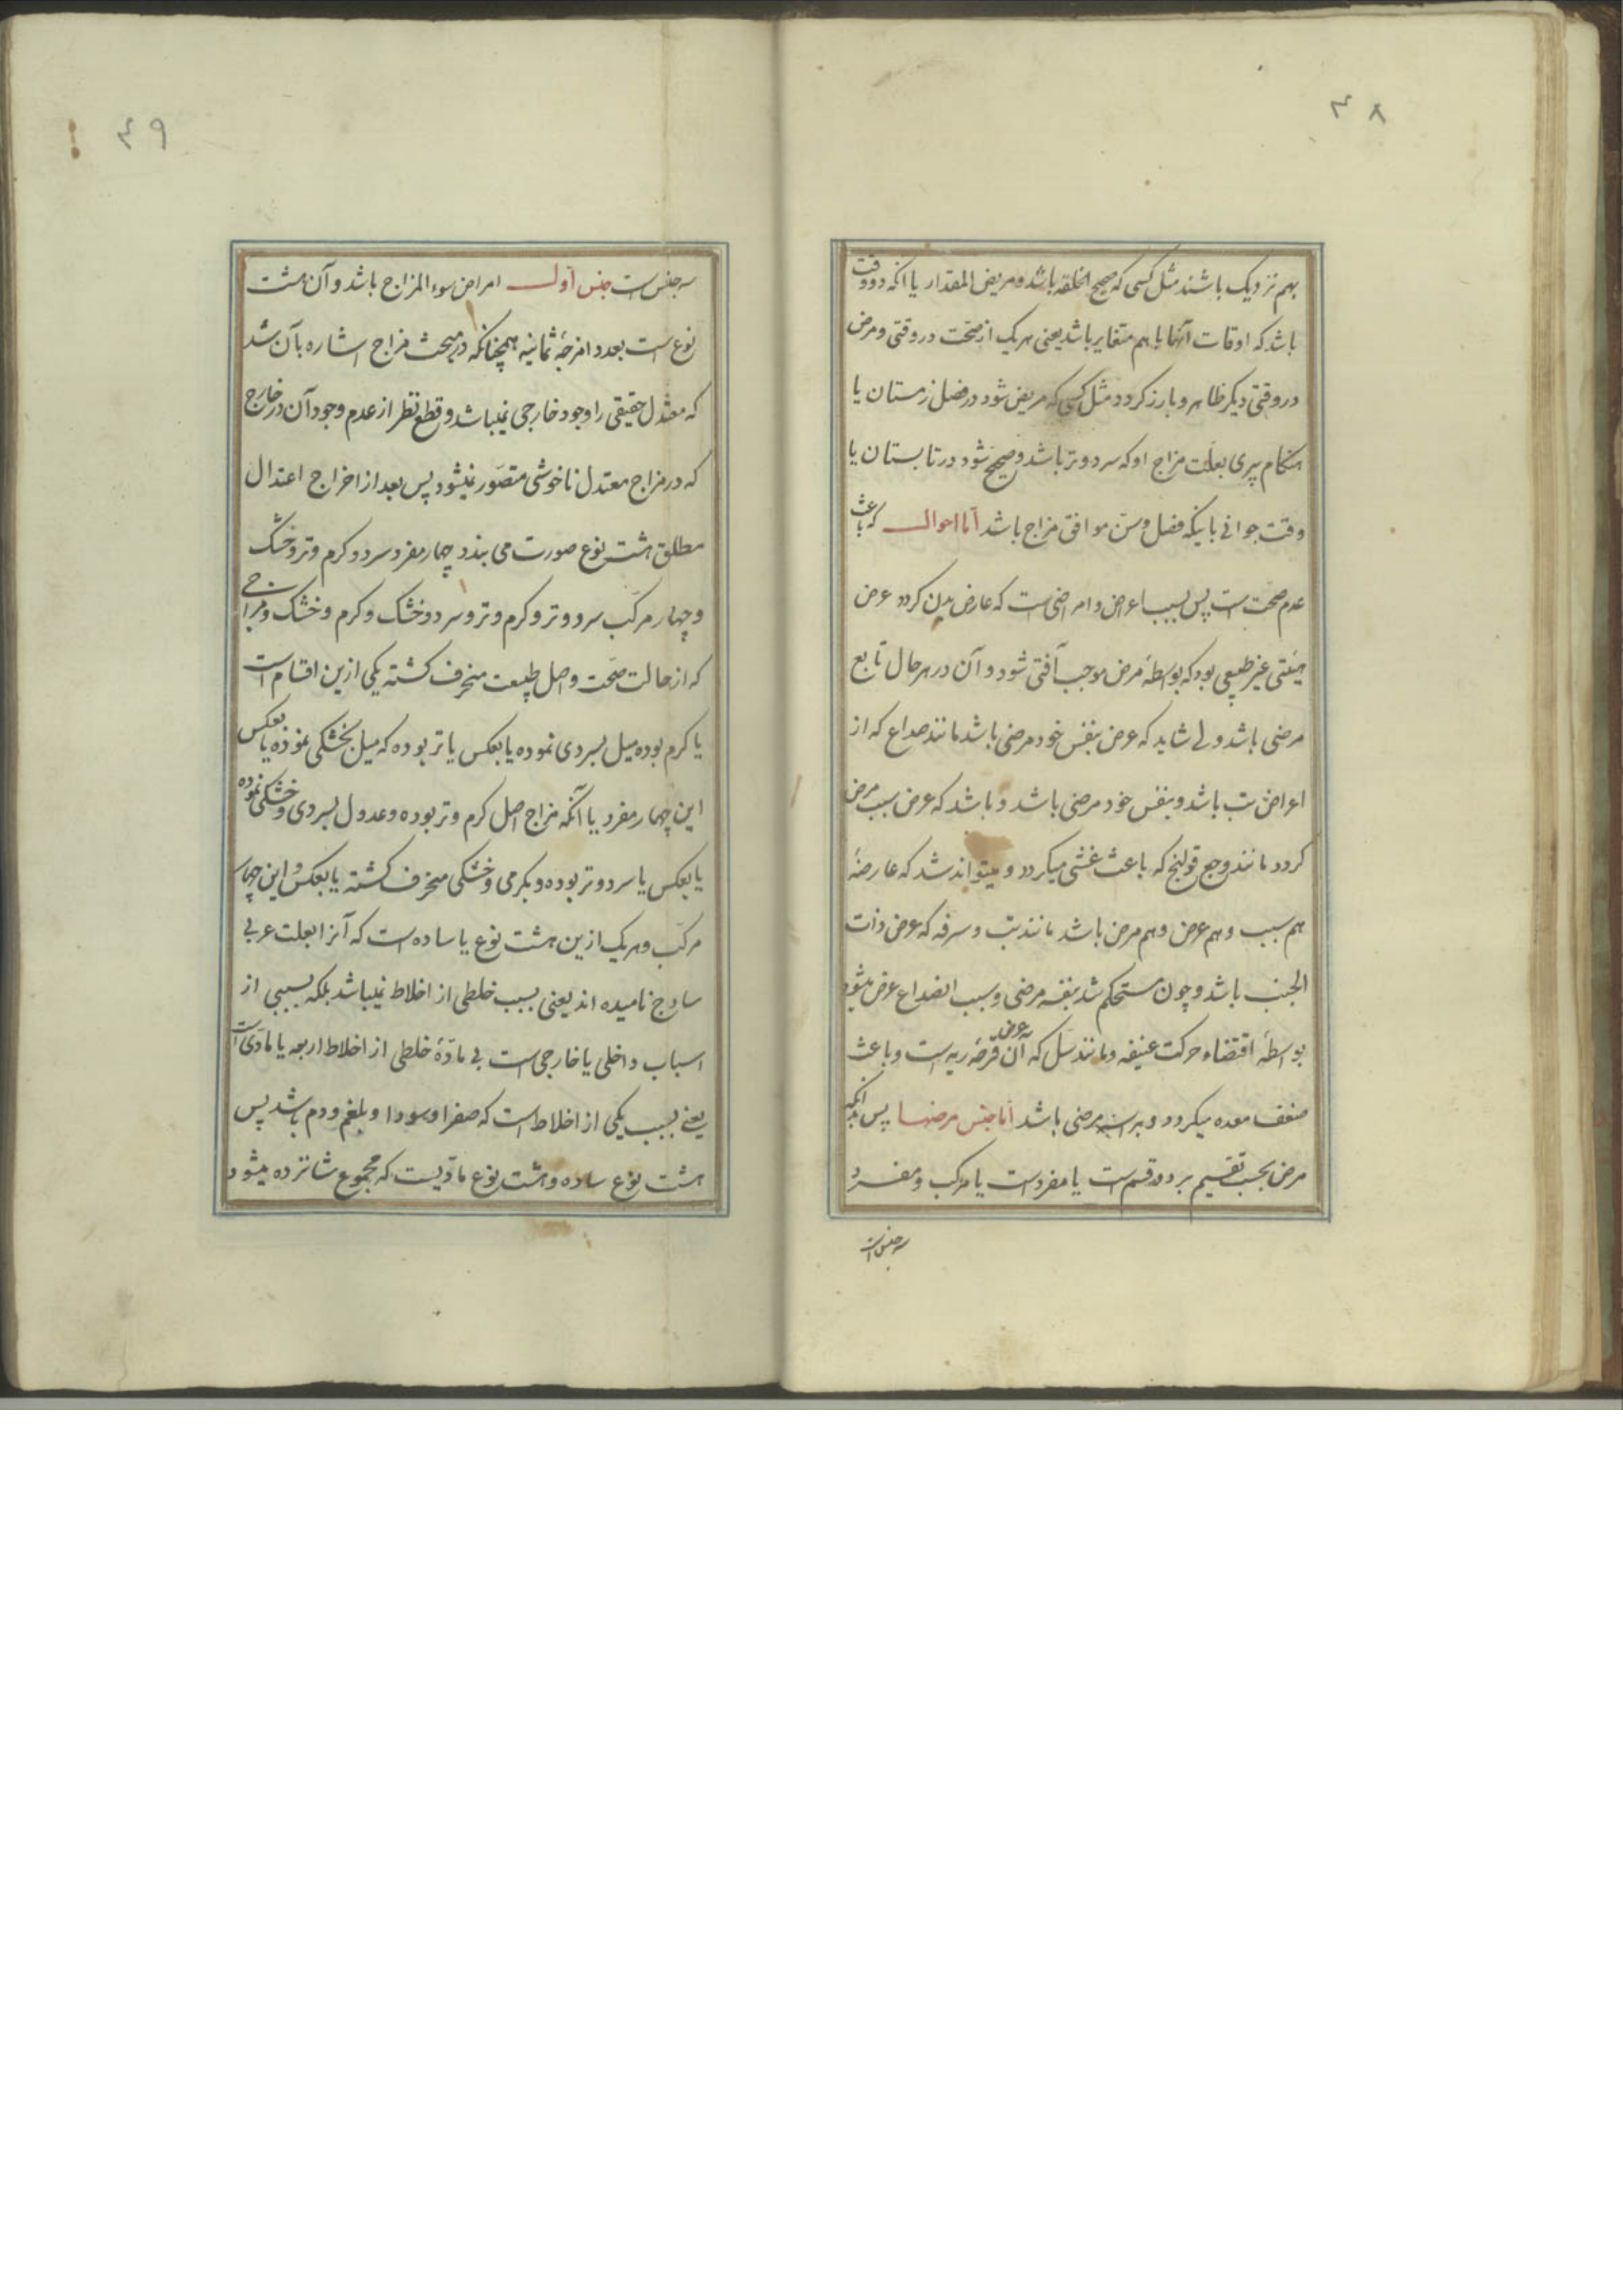 ۳۸
بهم نزدیک باشند مثل کسی که صحیح الخلقه باشد و مریض المقدار یا انکه دو وقت
باشد که اوقات آنها باهم متغایر باشد یعنی هریک از صحّت در وقتی و مرض
در وقتی دیکر ظاهر و بارز کردد مثل کسی که مریض شود در فصل زمستان یا
هنکام پیری بعلّت مزاج او که سرد و تر باشد و صحیح شود در تابستان یا
وقت جوانی باینکه فصل و سنّ موافق مزاج باشد امّا احوال که باعث
عدم صحّت است پس بسبب اعراض و امراضی است که عارض بدن کردد عرض
هیئتی غیر طبیعی بود که بواسطهٔ مرض موجب آفتی شود و آن در هر حال تابع
مرضی باشد ولی شاید که عرض بنفس خود مرضی باشد مانند صداع که از
اعراض تب باشد و بنفس خود مرضی باشد و باشد که عرض سبب مرض
کردد مانند وجع قولنج که باعث غشی میکردد و میتواند شد که عارضهٔ
هم سبب و هم عرض و هم مرض باشد مانند تب و سرفه که عرض ذات
الجنب باشد و چون مستحکم شد بنفسه مرضی و سبب انصداع عرض میشود
بواسطهٔ اقتضاء حرکت عنیفه و مانند سل که آن عرض قرحهٔ ریه است و باعث
ضعف معده میکردد و مرضی باشد امّا جنس مرضها پس بدانکه
مرض بحسب تقسیم بر دو قسم است یا مفرد است یا مرکب و مفرد
سه جنس است
۴۹
سه جنس است جنس اوّل امراض سوء المزاج باشد و آن هشت
نوع است بعدد امزجهٔ ثمانیه همچنانکه در مبحث مزاج اشاره بآن شد
که معتدل حقیقی را وجود خارجی نمیباشد و قطع نظر از عدم وجود آن در خارج
که در مزاج معتدل ناخوشی متصوّر نمیشود پس بعد از اخراج اعتدال
مطلق هشت نوع صورت می بندد چهار مفرد سرد و کرم و تر و خشک
و چهار مرکّب سرد و تر و کرم و تر و سرد و خشک و کرم و خشک و مزاجی
که از حالت صحّت و اصل طبیعت منحرف کشته یکی ازین اقسام است
یا کرم بوده میل بسردی نموده یا بعکس یا تر بوده که میل بخشکی نموده یا بعکس
این چهار مفرد یا آنکه مزاج اصل کرم و تر بوده و عدول بسردی و خشکی نموده
یا بعکس یا سرد و تر بوده و بکرمی و خشکی منحرف کشته یا بعکس و این چهار
مرکّب و هریک ازین هشت نوع یا ساده است که آنرا بلغت عربی
سادج نامیده اند یعنی بسبب خلطی از اخلاط نمیباشد بلکه بسببی از
اسباب داخلی یا خارجی است بی مادّهٔ خلطی از اخلاط اربعه یا مادّی است
یعنی بسبب یکی از اخلاط است که صفرا و سودا و بلغم و دم باشد پس
هشت نوع ساده و هشت نوع مادّیست که مجموع شانزده میشود